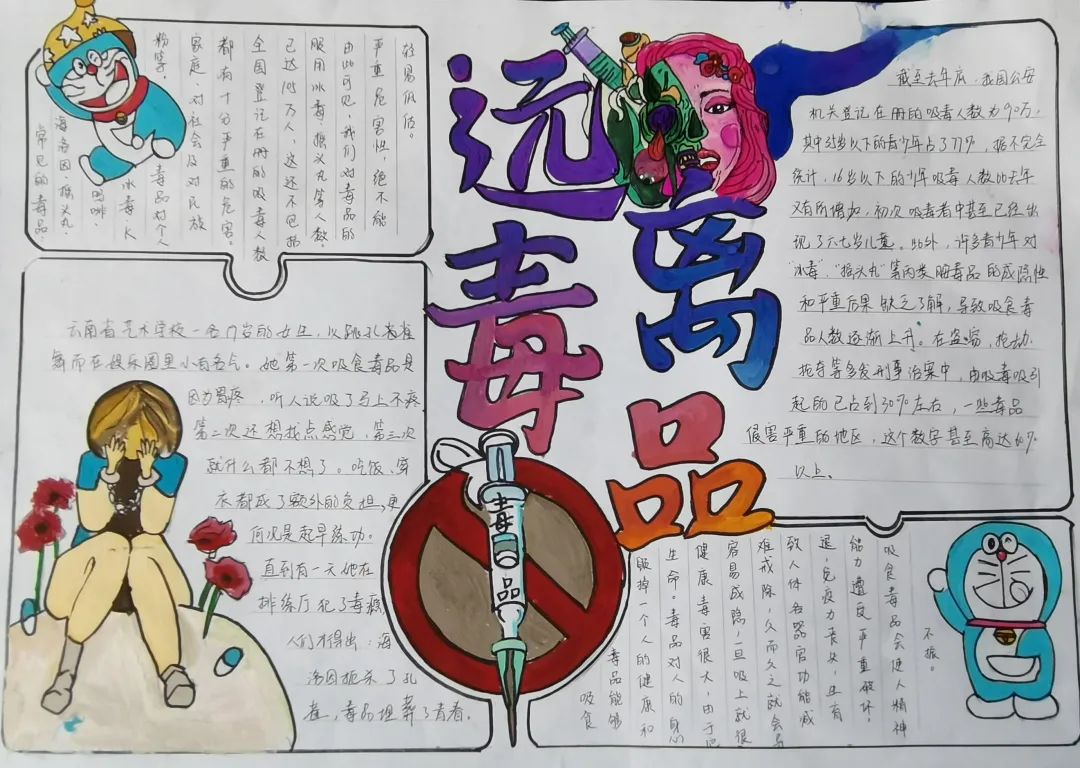 远离
毒品
常见的毒品：
海洛因、摇头丸、
吗啡、
冰毒、K
粉等。毒品对个人
家庭、对社会及对民族
都有十分严重的危害。
全国登记在册的吸毒人数
已达105万人，这还不包括
服用冰毒、摇头丸等人数。
由此可见，我们对毒品的
严重危害性，绝不能
轻易低估。
截至去年底，我国公安
机关登记在册的吸毒人数为90万，
其中35岁以下的青少年占了77%，据不完全
统计，16岁以下的少年吸毒人数比去年
又有所增加，初次吸毒者中甚至已经出
现了六七岁儿童。此外，许多青少年对
“冰毒”，“摇头丸”等丙类
毒品的成瘾性
和严重后果缺乏了解，导致吸食毒
品人数逐渐上升。在盗窃，抢劫，
抢夺等多发刑事治案中，由吸毒吸引
起的已占到30%左右，一些毒品
侵害严重的地区，这个数字甚至高达60%
以上。
云南省艺术学校一名17岁的女生，以跳孔雀
舞而在娱乐圈里小有名气。她第一次吸食毒品是
因为胃疼，听人说吸了马上不疼
第二次还想找点感觉，第三次
就什么都不想了。吃饭、穿
衣都成了额外的负担，更
何况是起早练功。
直到有一天她在
排练厅犯了毒瘾
人们才得出：海
洛因扼杀了孔
雀，毒品埋葬了青春。
毒品
吸食
毒品能够
毁掉一个人的健康和
生命。毒品对人的身心
健康毒害很大，由于它
容易成瘾，一旦吸上就很
难戒除，久而久之就会导
致人体各器官功能减
退，免疫力丧失，且有
能力遭受严重破坏，
吸食毒品会使人精神
不振。